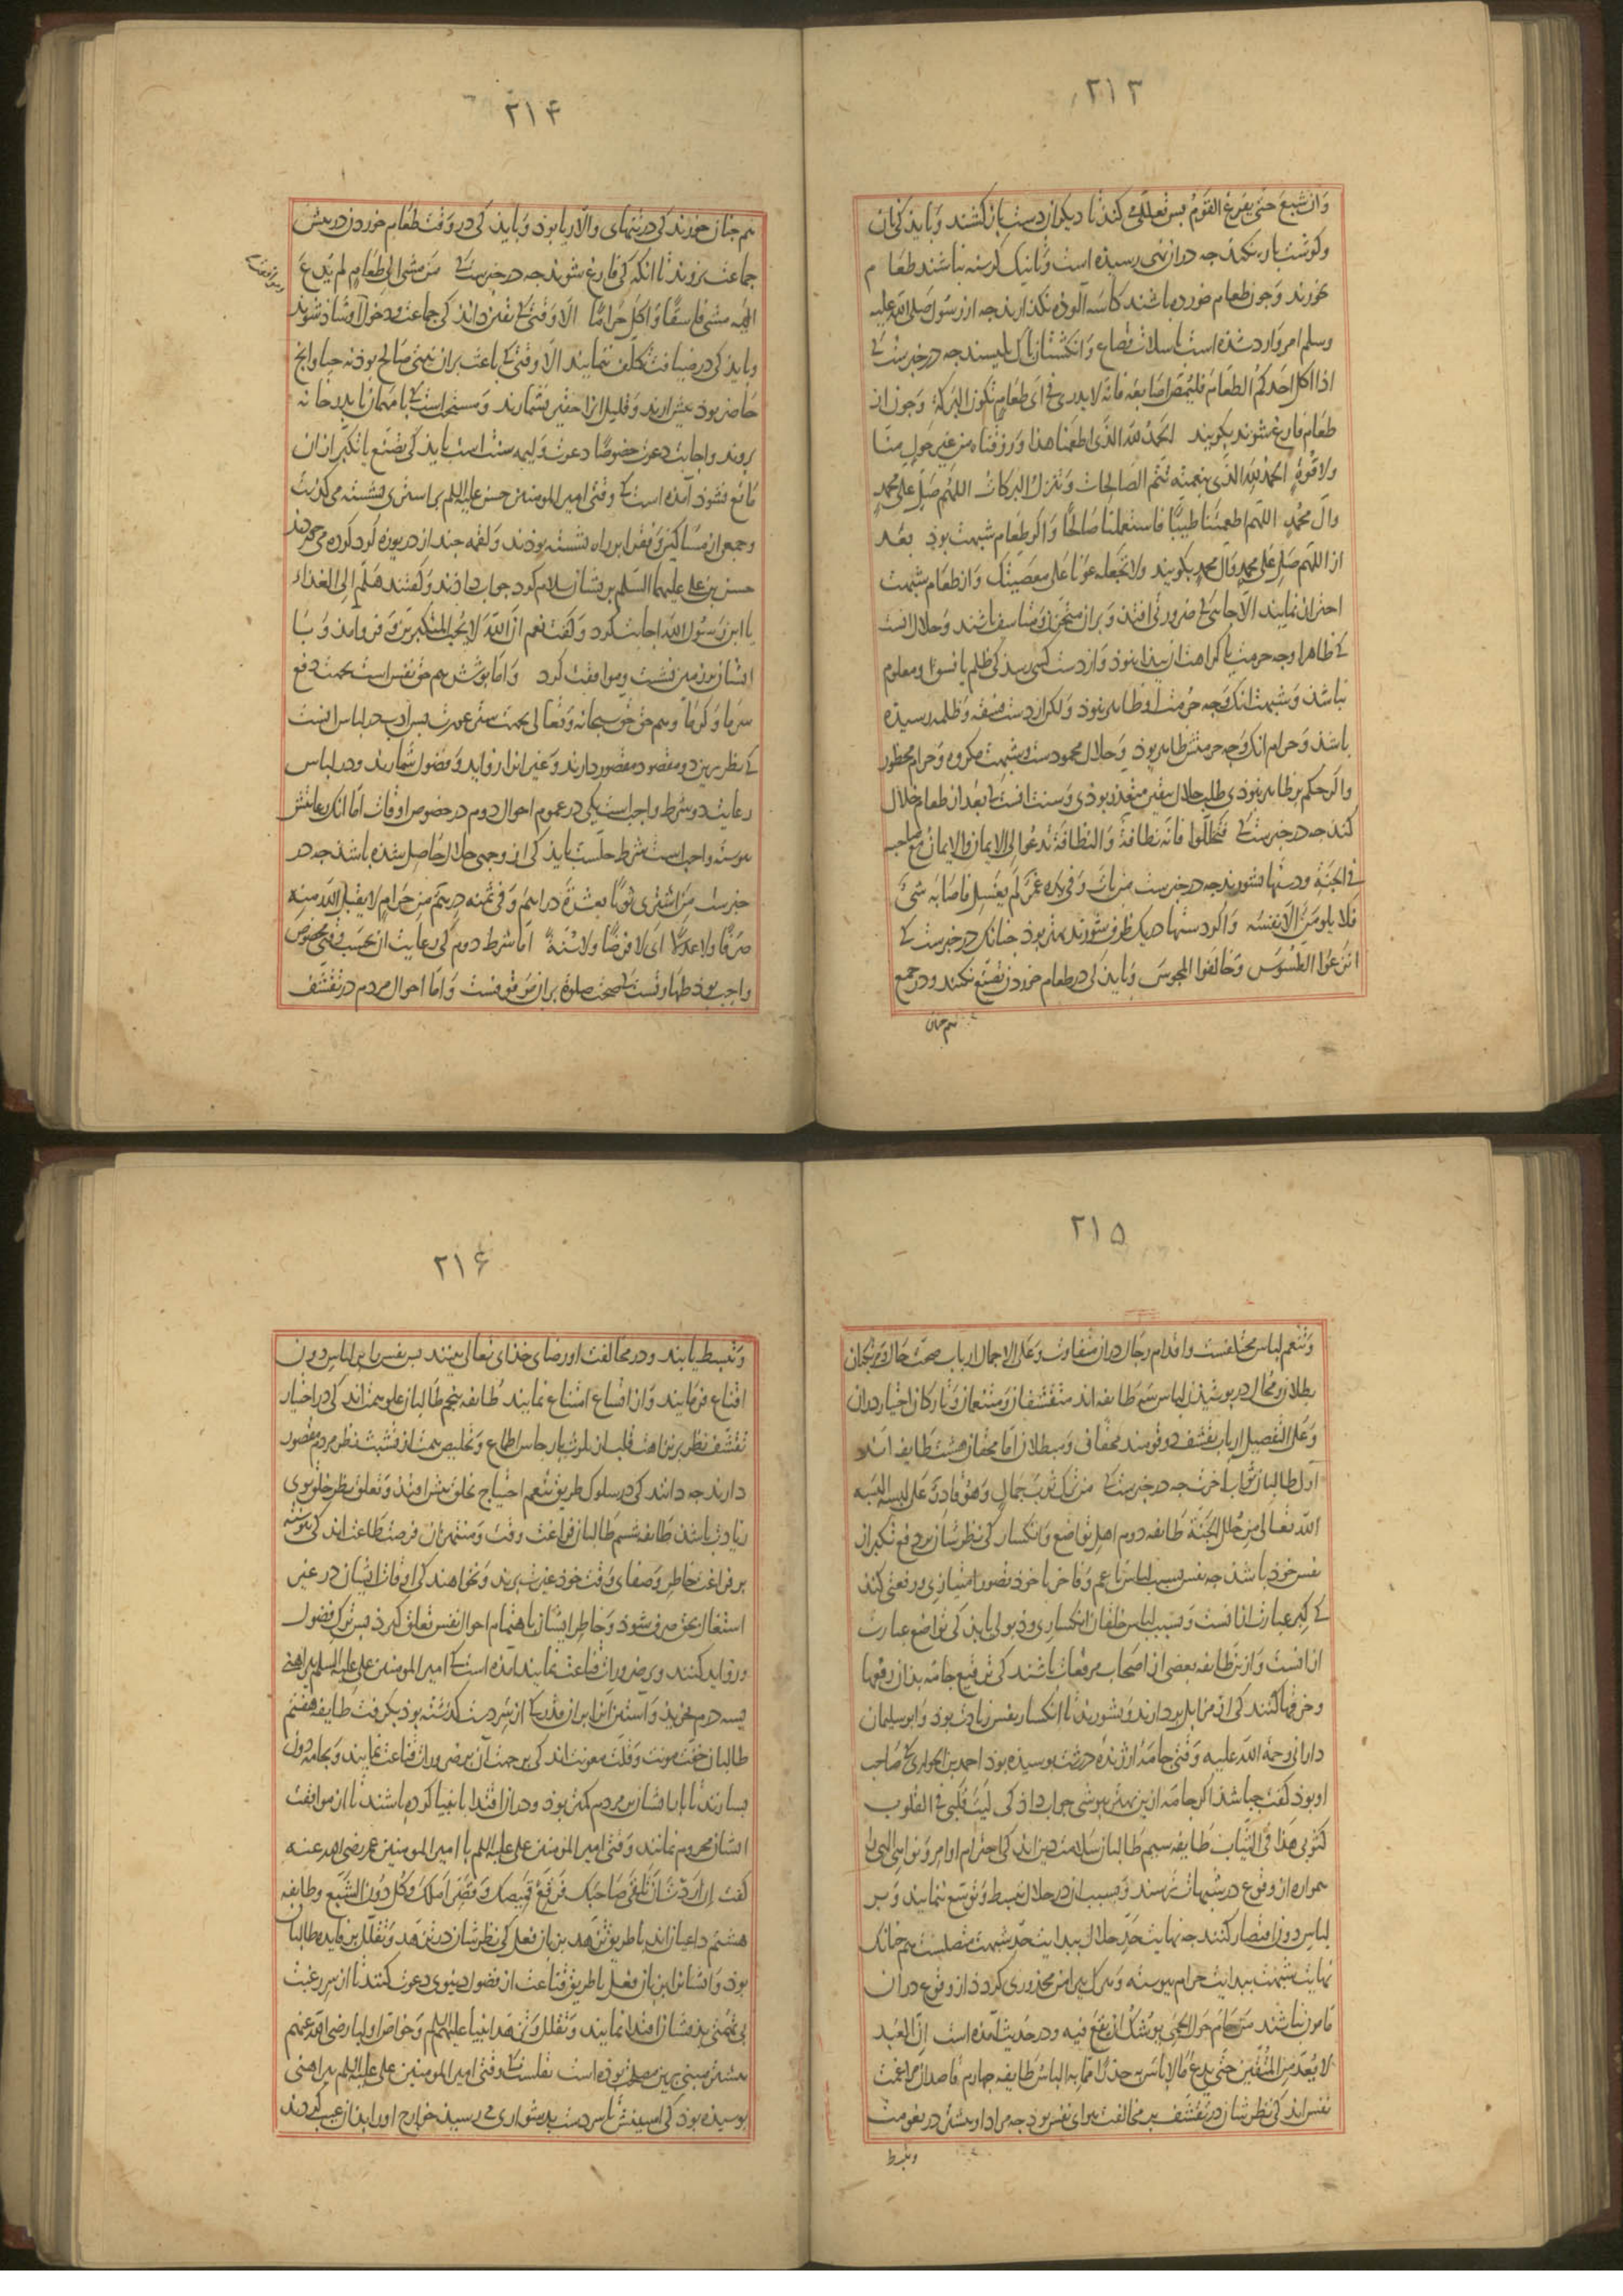 ۲۱۳
وان شبع حتی یفرغ القوم پس تعللی کنذ تا دیکران دست بازکشند وبایذ کی نان
وکوشت پاره نکنذ جه دران نهی رسیذه است وتا نیک کرسنه نباشند طعام
نخورند وجون طعام خورده باشند کاسه آلوده نکذارند جه از رسول صلی الله علیه
وسلم امر وارد شذه است باسلات قصاع وانکشتان پاک بلیسند جه در خبرست کی
اذا اکل احدکم الطعام فلیمص اصابعه فانه لا یدری فی ای طعام تکون البرکة وجون از
طعام فارغ شوند بکویند الحمد لله الذی اطعمنا هذا ورزقناه من غیر حول منا
ولا قوة الحمد لله الذی بنعمته تتم الصالحات وتنزل البرکات اللهم صل علی محمد
وال محمد اللهم اطعمتنا طیبا فاستعملنا صالحا واکر طعام شبهت بوذ بعد
از اللهم صل علی محمد وال محمد بکویند ولا تجعله عونا علی معصیتک واز طعام شبهت
احتراز نمایند الا جایی کی ضرورتی افتد وبران متحزن ومتاسف باشند وحلال انست
کی ظاهرا وجه حرمت یا کراهت ازو پیدا نبوذ واز دست کسی رسذ کی ظلم یا فسق او معلوم
نباشذ وشبهت انک وجه حرمت او ظاهر نبوذ ولکن از دست فسقه وظلمه رسیذه
باشذ وحرام انک وجه حرمتش ظاهر بوذ وحلال محمودست وشبهت مکروه وحرام محظور
واکر حکم بر ظاهر نبوذی طلب حلال بیقین متعذر بوذی وسنت انست کی بعد از طعام خلال
کنند جه در خبرست کی تخللوا فانه نظافة والنظافة تدعوا الی الایمان والایمان مع صاحبه
فی الجنة ودستها بشورند جه در خبرست من بات وفی یده غمر لم یغسل فاصابه شیء
فلا یلومن الا نفسه واکر دستها در یک ظرف شورند بهتر بوذ جنانک در خبرست کی
اترعوا الطسوس وخالفوا المجوس وبایذ کی در طعام خوردن تصنع نکنند ودر جمع
هم جنان
۲۱۴
هم جنان خورند کی در تنهای والا ریا بوذ وبایذ کی در وقت طعام خوردن در پیش
جماعت نروند تا انکه کی فارغ شوند جه در خبرست کی من مشی الی طعام لم یدع
الیه مشی فاسقا واکل حراما الا وقتی کی بیقین دانذ کی جماعت بدخول او شاذ شوند
وبایذ کی در ضیافت تکلف ننمایند الا وقتی کی باعث بران نیتی صالح بوذ نه حیا وانج
حاضر بوذ پیش ارند وقلیل انرا حقیر نشمارند ومستحب است کی با مهمان تا بدر خانه
بروند واجابت دعوت خصوصا دعوت ولیمه سنت است بایذ کی تصنع یا تکبر از ان
مانع نشوذ آمده است کی وقتی امیر المومنین حسن علیه السلم بر استری نشسته می کذشت
وجمعی از مساکین وفقرا بر راه نشسته بوذند ولقمه جند از دریوزه کرد کرده می خوردند
حسن بن علی علیهما السلم بریشان سلام کرد جواب داذند وکفتند هلم الی الغداء
یا ابن رسول الله اجابت کرد وکفت نعم ان الله لا یحب المتکبرین وفروآمد وبا
ایشان بر زمین نشست وموافقت کرد واما پوشش هم حق نفس است بجهت دفع
سرما وکرما وهم حق حق سبحانه وتعالی بجهت ستر عورت پس ادب در لباس انست
کی نظر برین دو مقصود مقصور دارند وغیر انرا زواید وفضول شمارند ودر لباس
رعایت دو شرط واجب است یکی در عموم احوال دوم در خصوص اوقات اما انک رعایتش
پیوسته واجب است شرط حلست بایذ کی از وجهی حلال حاصل شذه باشذ جه در
خبرست من اشتری ثوبا بعشرة دراهم وفی ثمنه درهم من حرام لا یقبل الله منه
صرفا ولا عدلا ای لا فرضا ولا سنة اما شرط دوم کی رعایت ان بحسب وقتی مخصوص
واجب بوذ طهارتست کی صحت صلوة بران موقوفست واما احوال مردم در تقشف
۲۱۵
وتنعم لباس مختلفست واقدام رجال دران متفاوت وعلی الاجمال ارباب صحت حال
بطلان ومحال در پوشیذن لباس سه طایفه اند متقشفان ومتنعمان وتارکان اختیار دران
وعلی التفصیل ارباب تقشف دو قومند محقان ومبطلان اما محقان هشت طایفه اند
اول طالبان ثواب آخرت جه در خبرست کی من ترک ثوب جمال وهو قادر علی لبسه البسه
الله تعالی من حلل الجنة طایفه دوم اهل تواضع وانکسار کی نظرشان بر دفع تکبر از
نفس خوذ باشذ جه نفس بسبب لباس ناعم وفاخر با خوذ تصور امتیازی ورفعتی کند
کی کبر عبارت ازانست وبسبب لباس خلقان انکساری وذبولی یابذ کی تواضع عبارت
ازانست واز ین طایفه بعضی از اصحاب مرقعات باشند کی ترقیع جامه بذان رقعها
وخرقها کنند کی از مزابل بردارند وبشورند تا انکسار نفس زیادت بوذ وابو سلیمان
دارانی رحمة الله علیه وقتی جامهٔ ژنده درشت پوسیذه بوذ احمد بن ابی الحواری کی صاحب
او بوذ کفت جه باشذ اکر جامه ازین بهتر پوشی جواب داذ کی لیت قلبی فی القلوب
کثوبی هذا فی الثیاب طایفه سیم طالبان سلامت دین اند کی احترام اوامر ونواهی الهی را
همواره از وقوع در شبهات ترسند وبسبب ان در حلال تبسط وتوسع ننمایند وبر
لباس دون اقتصار کنند جه نهایت حد حلال ببدایت حد شبهت متصلست هم جنانک
نهایت شبهت ببدایت حرام پیوسته وهرک پیرامن محذوری کردذ از وقوع دران
مامون نباشذ من حام حول الحمی یوشک ان یقع فیه ودر حدیث آمده است ان العبد
لا یعد من المتقین حتی یدع ما لا باس به حذرا مما به الباس طایفه جهارم قاصدان مراغمت
نفس اند کی نظرشان در تقشف بر مخالفت هوای نفس بوذ جه مراد او بیشتر در نعومت
وتبسط
۲۱۶
وتبسط یابند ودر مخالفت او رضای خذای تعالی بینند پس نفس را برلباس دون
اقناع فرمایند وازان اقساع امتناع نمایند طایفه پنجم طالبان علو همت اند کی در اختیار
تقشف نظر بر نزاهت قلب از تلوث ارجاس اطماع وتخلیص همت از تشبث نظر مردم مقصور
دارند جه دانند کی در سلوک طریق تنعم احتیاج بخلق بیشتر افتذ وتعلق نظر خلق بوی
زیادت باشذ طایفه ششم طالبان فراغت وقت ومنتهزان فرصت طاعت اند کی پیوسته
بر فراغت خاطر وصفای وقت خوذ غیرت برند ونخواهند کی اوقات ایشان در غیر
اشتغال بحق صرف شوذ وخاطر ایشان باهتمام احوال نفس تعلق کیرذ پس ترک فضول
وزواید کنند وبر ضرورات قناعت نمایند آمده است کی امیر المومنین علی علیه السلم پیراهنی
بسه درم بخریذ واستین انرا بران قدر کی از سر دست کذشته بوذ بکرفت طایفه هفتم
طالبان خفت مونت وقلت معونت اند کی بر جهت آن بر ضرورات قناعت نمایند وبجامه دون
بسازند تا بار ایشان بر مردم کمتر بوذ ودران اقتدا بانبیا کرده باشند تا از موافقت
ایشان محروم نمانند وقتی امیر المومنین علی علیه السلم با امیر المومنین عمر رضی الله عنه
کفت ان اردت ان تلقی صاحبک فرقع قمیصک وقصر املک وکل دون الشبع وطایفه
هشتم داعیان اند با طریق تزهد بزبان فعل کی نظرشان در تزهد وتقلل بر فایده طالبان
بوذ وایشانرا بزبان فعل با طریق قناعت از فضول دنیوی دعوت کنند تا از سر رغبت
بی تهمتی بذیشان اقتدا نمایند وتقلل وتزهد انبیا علیهم السلم وخواص اولیا رضی الله عنهم
بیشتر مبنی برین مصلحت بوذه است نقلست کی وقتی امیر المومنین علی علیه السلم پیراهنی
پوسیده بوذ کی استینش تا سر دست بدشواری می رسیذ خوارج اورا بذان عیب کردند